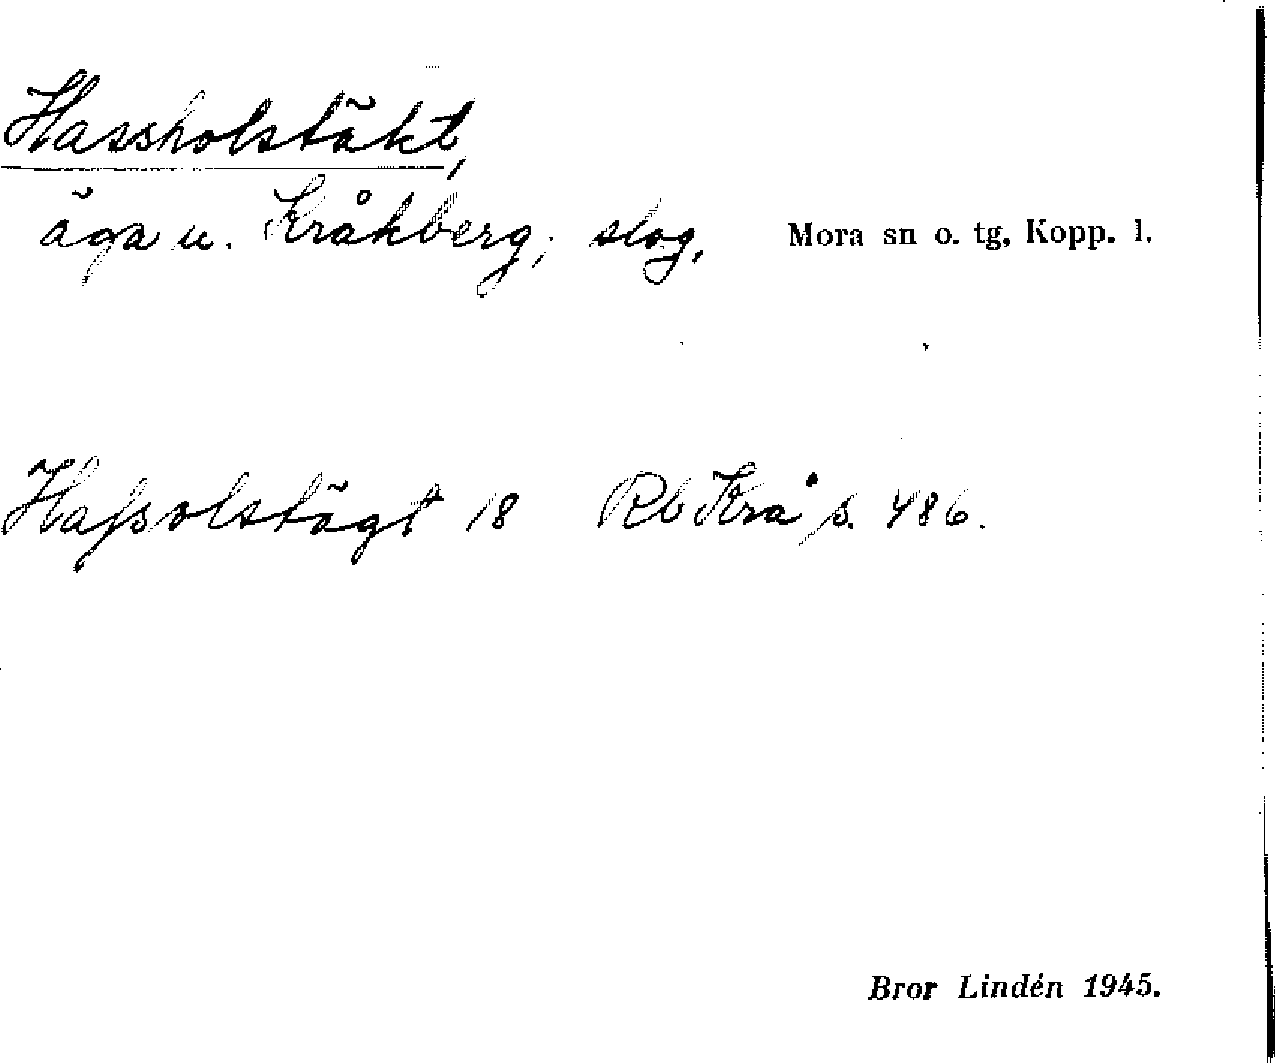 Hassholstäkt,
äga u. Kråkberg; slog. Mora sn o. tg, Kopp. l.
Hafsolstägt 18 Rb Krå s. 486.
Bror Lindén 1945.